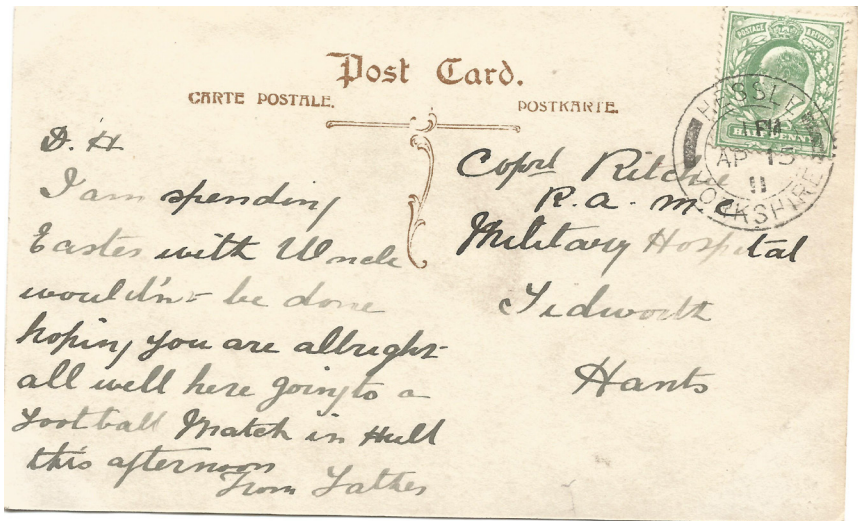 Post Card.
CARTE POSTALE.
POSTKARTE.
POSTAGE & REVENUE
HALF PENNY
HESSLE
1 PM
AP 15
11
YORKSHIRE
D. H
I am spending
Easter with Uncle
wouldn't be done
hoping you are allright
all well here going to a
Football Match in Hull
this afternoon
From Father
Coprl Ritchie
R. a. m c
Military Hospital
Tidworth
Hants